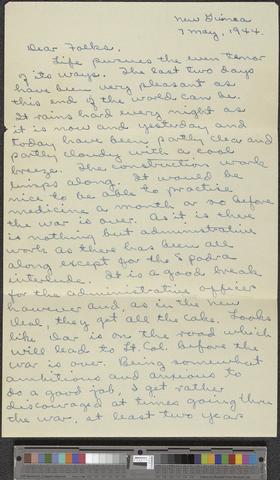 New Guinea
7 May, 1944.
Dear Folks,
Life pursues the even tenor
of its ways. The last two days
have been very pleasant as
this end of the world can be.
It rains hard every night as
it is now and yesterday and
today have been partly clear and
partly cloudy with a cool
breeze. The construction work
limps along. It would be
nice to be able to practice
medicine a month or so before
the war is over. As it is there
is nothing but administrative
work as there has been all
along except for the Spadra
interlude. It is a good break
for the administrative officer
however and, as in the new
deal, they get all the cake. Looks
like Dar is on the road which
will lead to Lt. Col. before the
war is over. Being somewhat
ambitious and anxious to
do a good job, I get rather
discouraged at times going thru
the war, at least two years